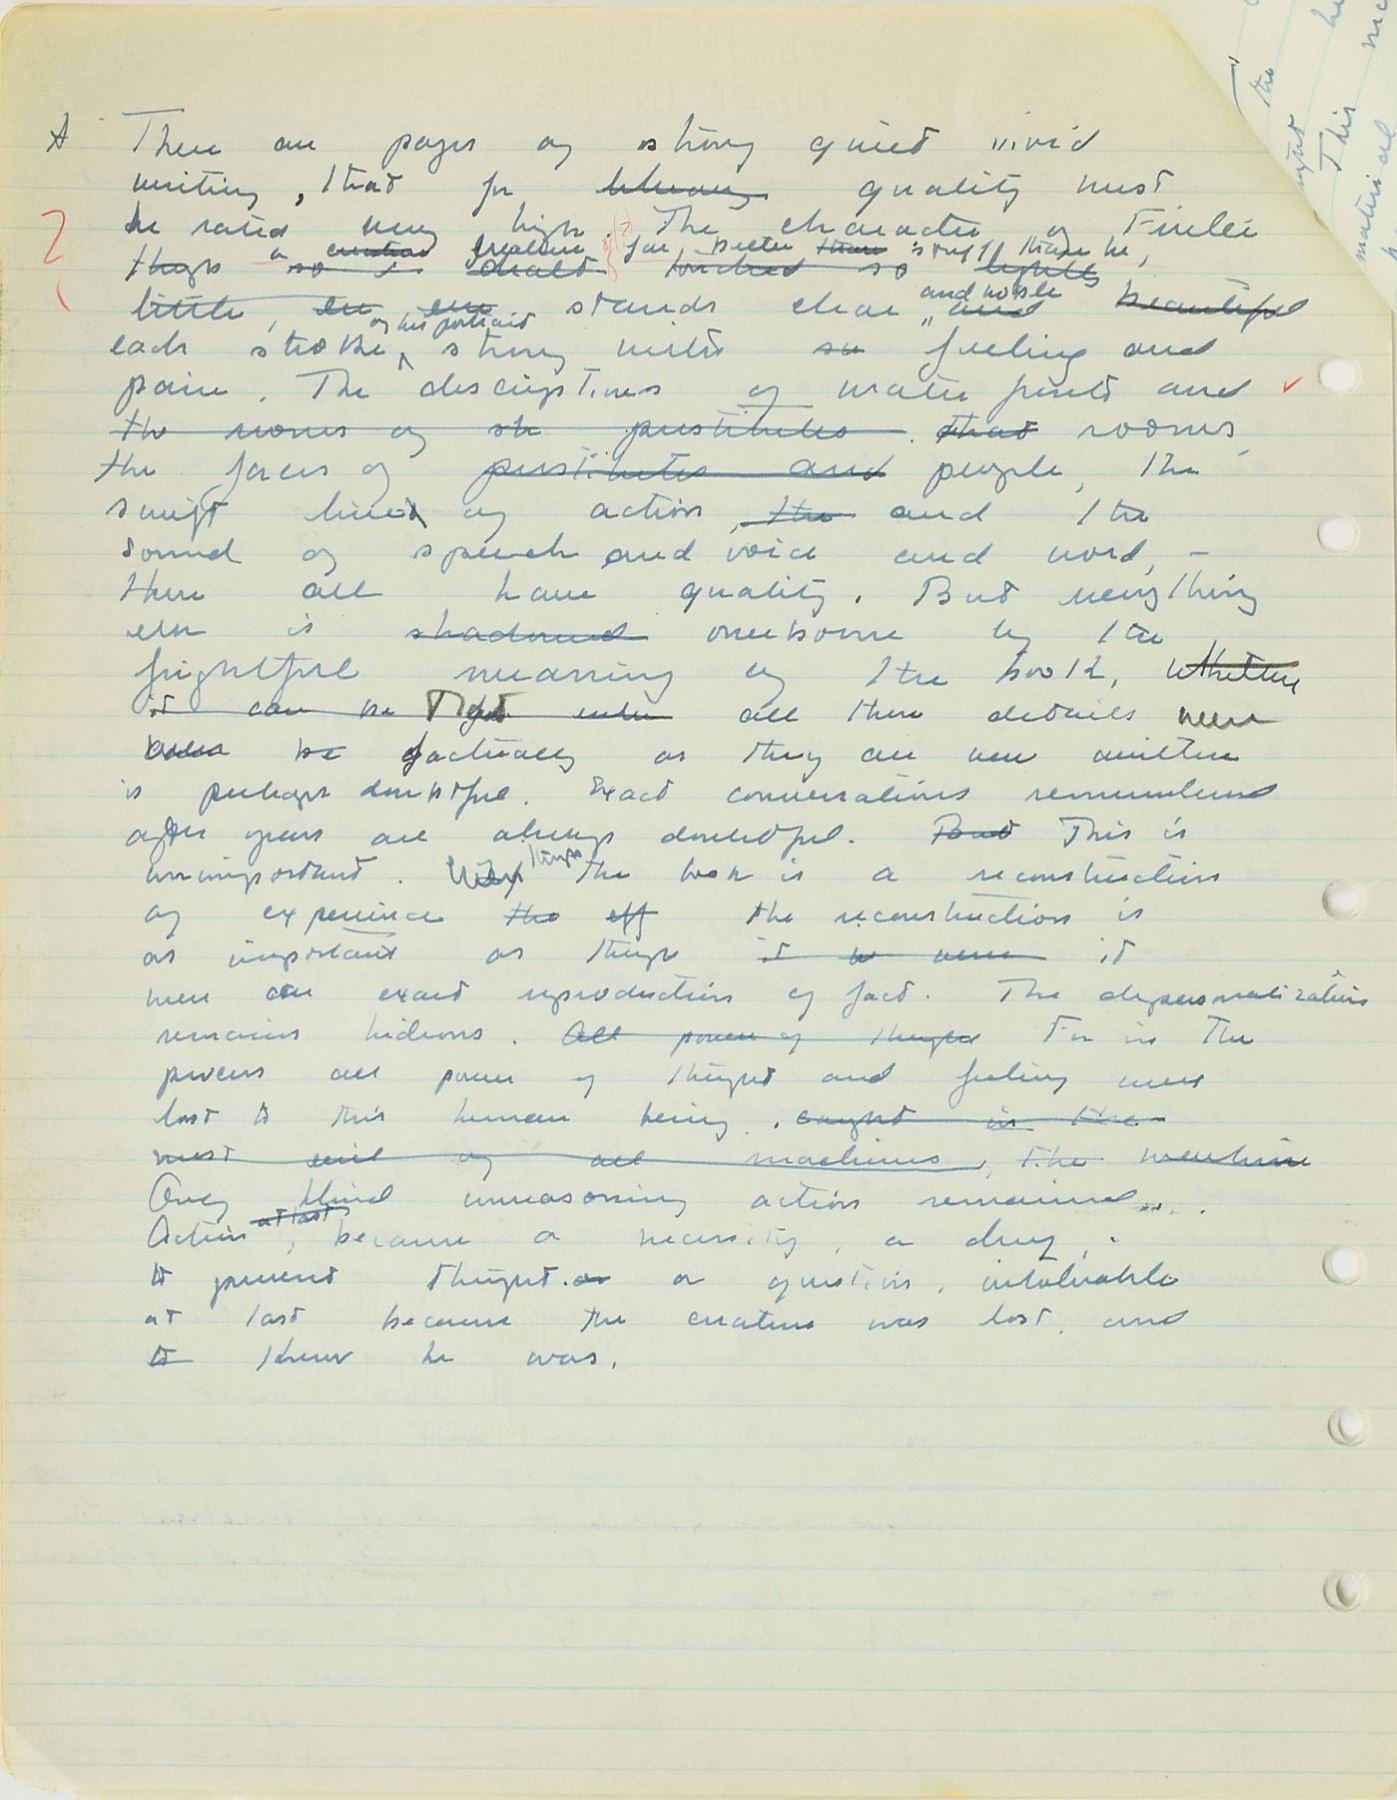 A There are pages of strong quiet vivid
writing, that for literary quality must
be rated very high. The character of
a creation far better than stuff than he,
though so lightly
little, stands clear and noble and beautiful
of his portrait
each stroke strong with so feeling and
pain. The descriptions of water fronts and
the rooms of prostitutes. that rooms,
the faces of prostitutes and people, the
swift lines of action, the and the
sound of speech and voice and word, -
these all have quality. But everything
else is shadowed overborne by the
frightful meaning of the book, Whether
it can be that when all these details were
been be factually as they are now written
is perhaps doubtful. Exact conversations remembered
after years are always doubtful. But This is
unimportant. though The book is a reconstruction
of experience the eff the reconstruction is
as important as though it were it
were an exact reproduction of fact. The depersonalization
remains hideous. All power of thought For in the
process all power of thought and feeling were
lost to this human being. caught in the
most evil of all machines, the machine
Only blind unreasoning action remained...
at last
Action, became a necessity, a drug,
to prevent thought. or a question, intolerable
at last because the creature was lost, and
to knew he was.
the
This
material